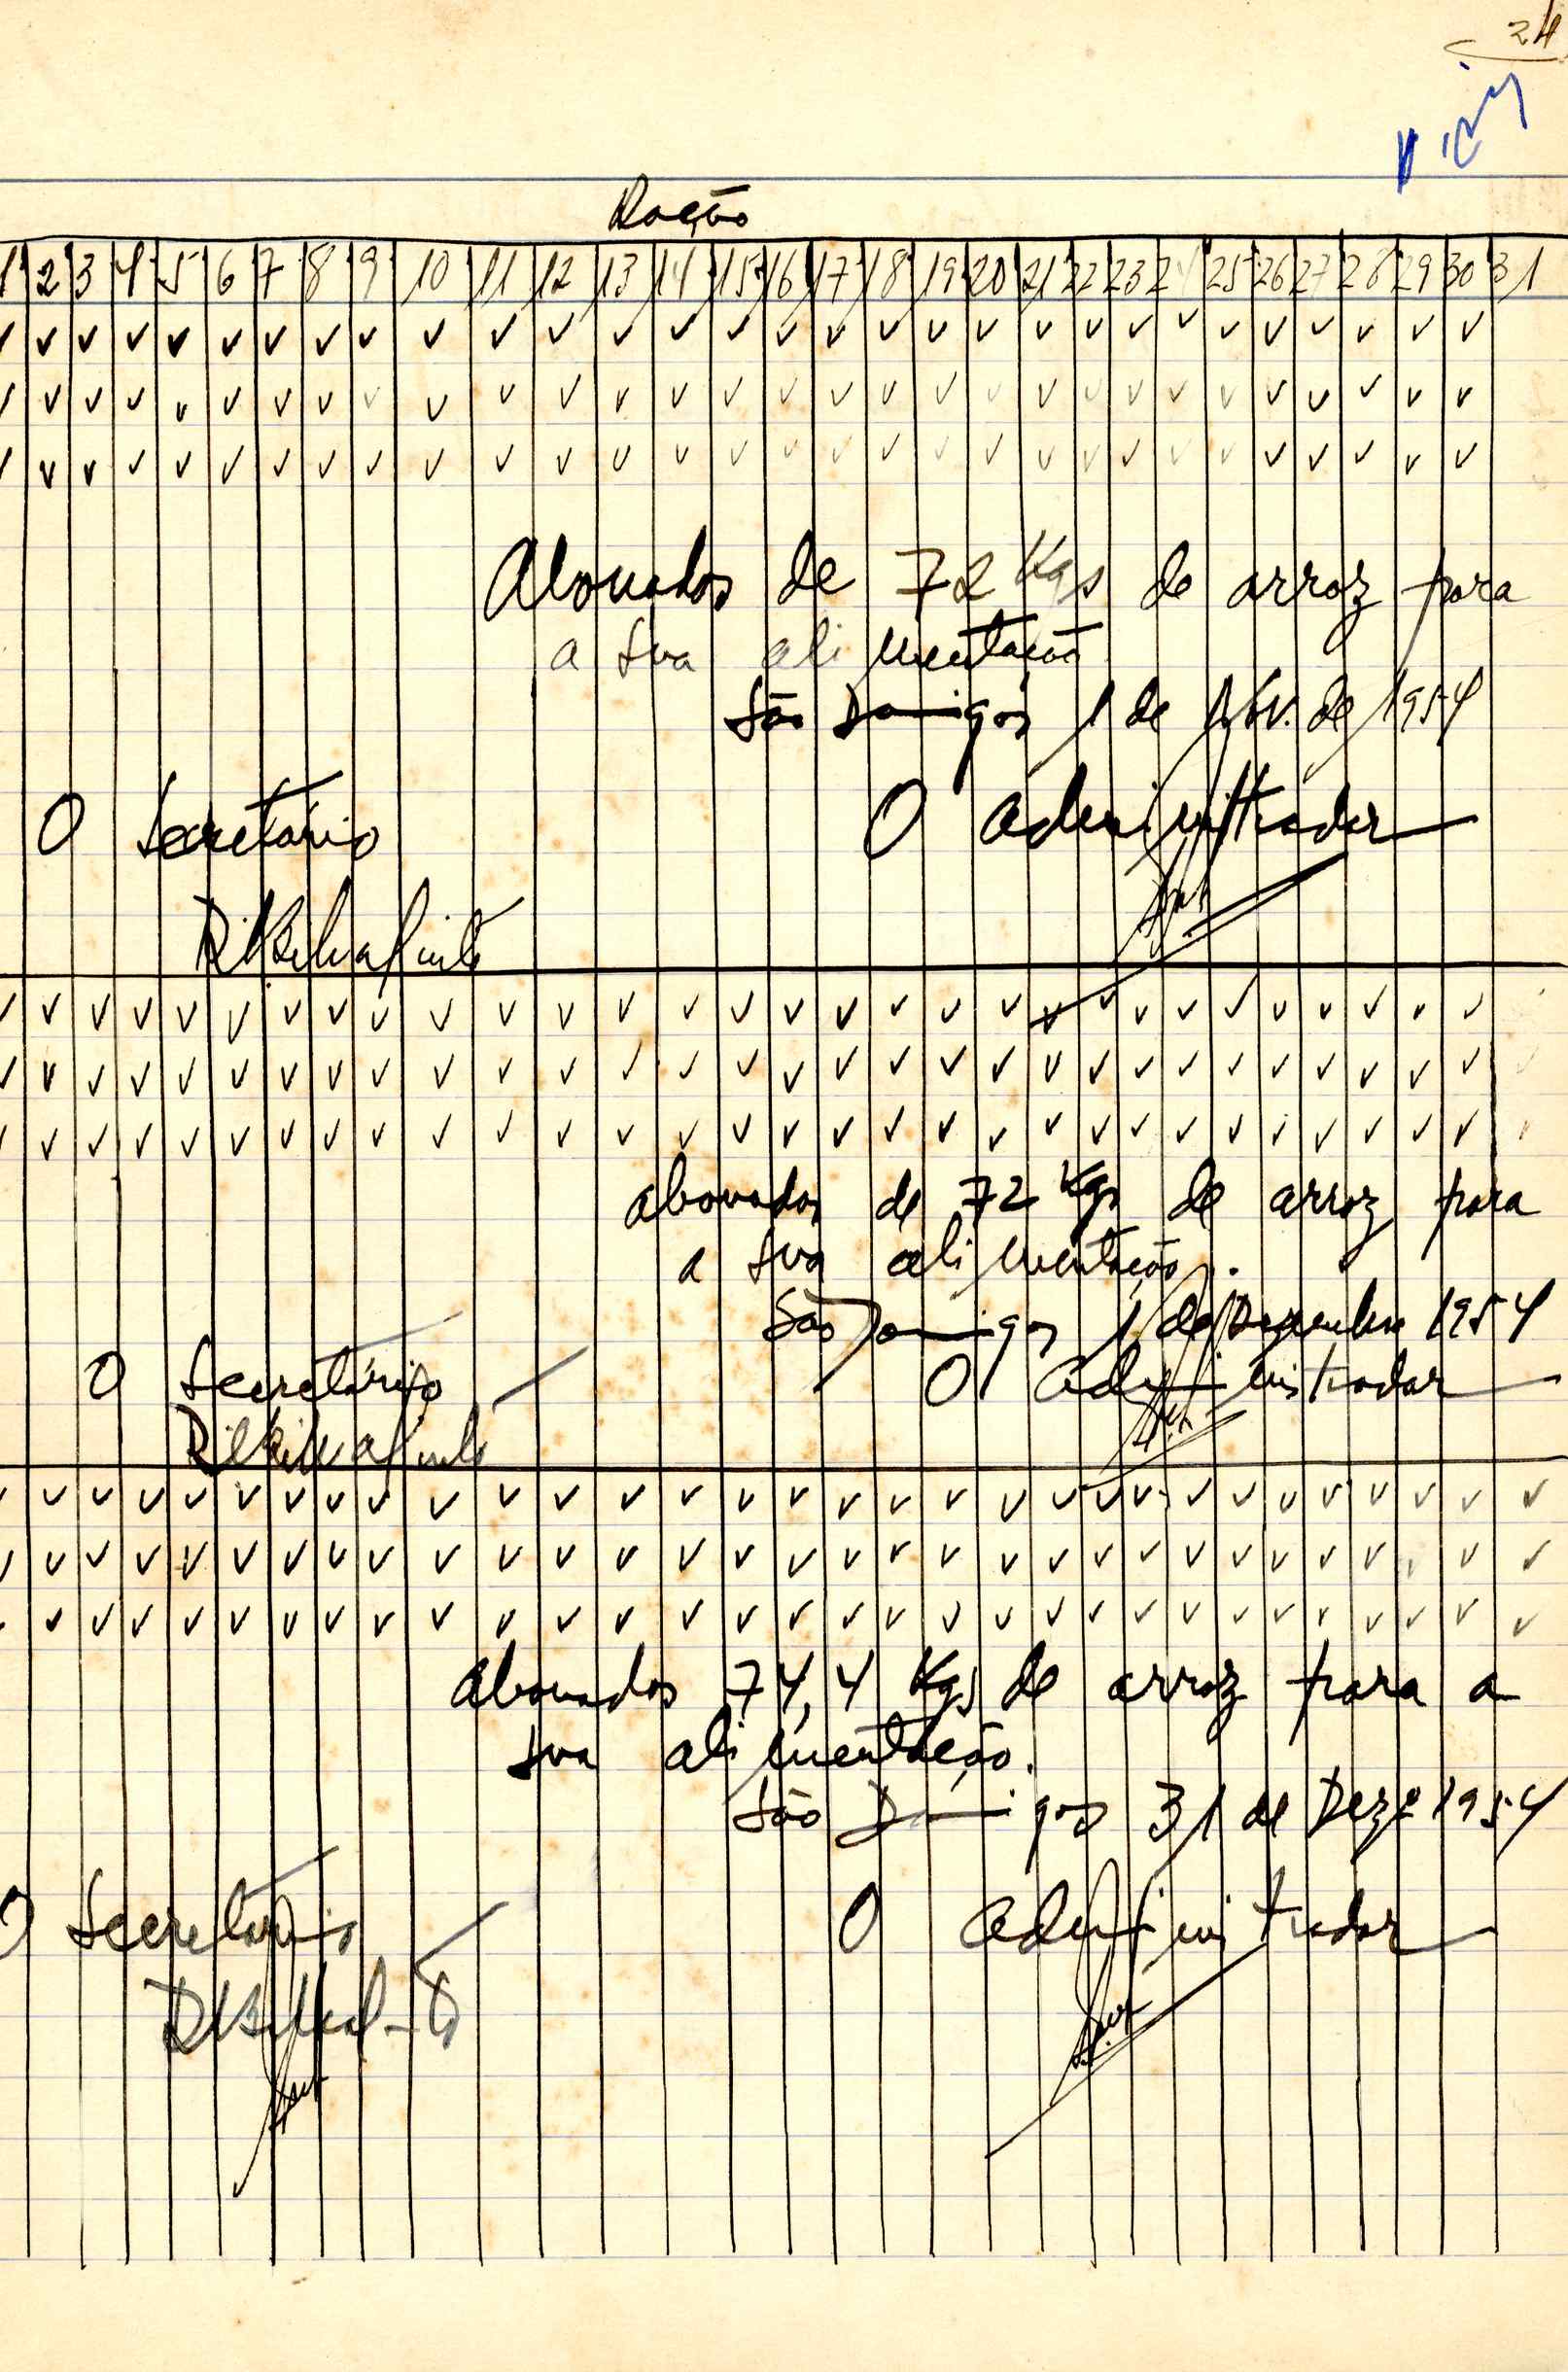 24
Ração
1 2 3 4 5 6 7 8 9 10 11 12 13 14 15 16 17 18 19 20 21 22 23 24 25 26 27 28 29 30 31
Abonados de 72 Kgs de arroz para
a sua alimentação
São Domigos 1 de de 1954
O Secretário O administrador
abonados de 72 Kgs de arroz para
a sua alimentação.
São Domigos 1 de Dezembro 1954
O Secretário O administrador
abonados 74,4 Kgs de arroz para a
sua alimentação.
São Domigos 31 de Dezº 1954
O Secretário O administrador